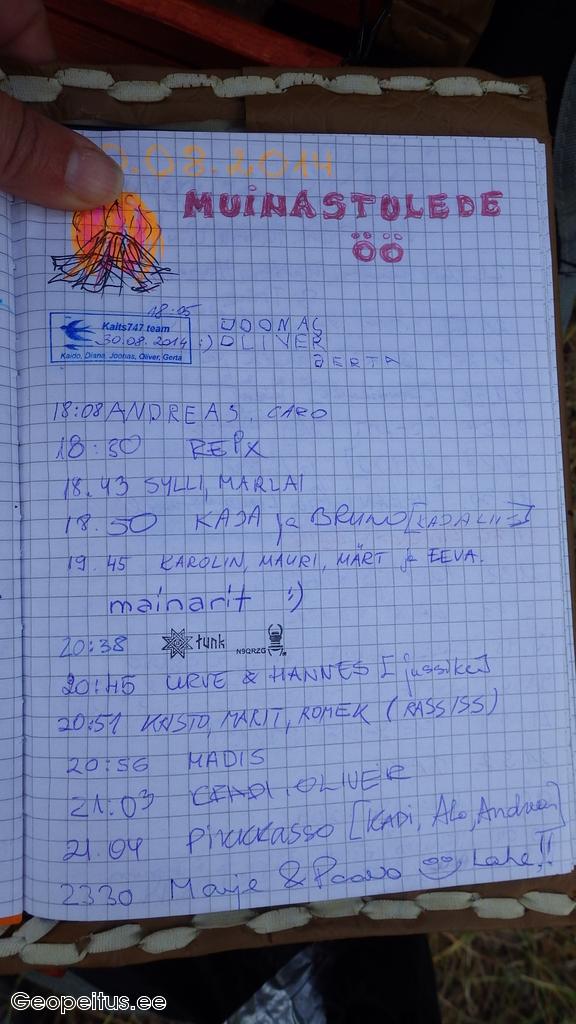 0.08.2014
MUINASTULEDE
ÖÖ
18:05
Kaits747 team
30.08.2014 :)
Kaido, Diana, Joonas, Oliver, Gerta
JOONAS
OLIVER
GERTA
18:08 ANDREAS, CARO
18:30 REPX
18.43 SYLLI, MARLAI
18.50 KAJA ja BRUNO
19.45 KAROLIN, MAURI, MÄRT ja EEVA.
mainarit :)
20:38 tunk N9QRZG
20:45 URVE & HANNES [jussike]
20:51 KRISTO, MARIT, ROMEK (RASSISS)
20:56 MADIS
21:03 OLIVER
21.04 Pirukkasso [KADI, Alo, Andreas]
2330 Marje & Paavo Lahe!!
Geopeitus.ee